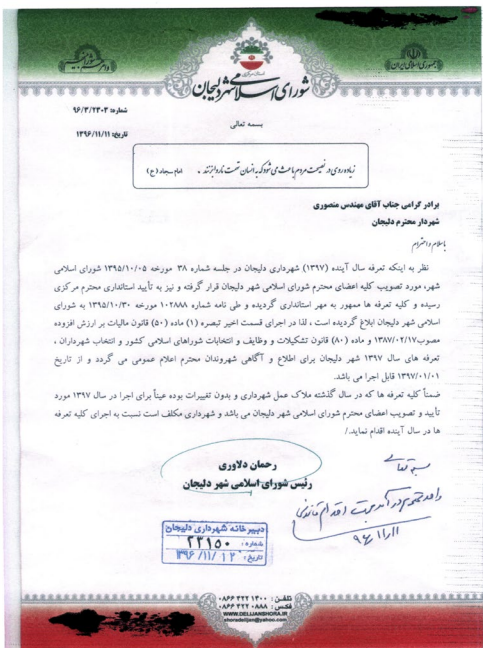 جمهوری اسلامی ایران
استان مرکزی
شورای اسلامی شهر دلیجان
شماره: ۹۶/۳/۲۳۰۳
تاریخ: ۱۳۹۶/۱۱/۱۱
بسمه تعالی
زیاده روی در نصیحت مردم باعث می شود که به انسان تهمت ناروا بزنند . امام سجاد (ع)
برادر گرامی جناب آقای مهندس منصوری
شهردار محترم دلیجان
باسلام و احترام
نظر به اینکه تعرفه سال آینده (۱۳۹۷) شهرداری دلیجان در جلسه شماره ۳۸ مورخه ۱۳۹۵/۱۰/۰۵ شورای اسلامی
شهر، مورد تصویب کلیه اعضای محترم شورای اسلامی شهر دلیجان قرار گرفته و نیز به تأیید استانداری محترم مرکزی
رسیده و کلیه تعرفه ها ممهور به مهر استانداری گردیده و طی نامه شماره ۱۰۲۸۸۸ مورخه ۱۳۹۵/۱۰/۳۰ به شورای
اسلامی شهر دلیجان ابلاغ گردیده است ، لذا در اجرای قسمت اخیر تبصره (۱) ماده (۵۰) قانون مالیات بر ارزش افزوده
مصوب ۱۳۸۷/۰۲/۱۷ و ماده (۸۰) قانون تشکیلات و وظایف و انتخابات شوراهای اسلامی کشور و انتخاب شهرداران ،
تعرفه های سال ۱۳۹۷ شهر دلیجان برای اطلاع و آگاهی شهروندان محترم اعلام عمومی می گردد و از تاریخ
۱۳۹۷/۰۱/۰۱ قابل اجرا می باشد.
ضمناً کلیه تعرفه ها که در سال گذشته ملاک عمل شهرداری و بدون تغییرات بوده عیناً برای اجرا در سال ۱۳۹۷ مورد
تأیید و تصویب اعضای محترم شورای اسلامی شهر دلیجان می باشد و شهرداری مکلف است نسبت به اجرای کلیه تعرفه
ها در سال آینده اقدام نماید./
رحمان دلاوری
رئیس شورای اسلامی شهر دلیجان
بسمه تعالی
واحد محترم درآمد جهت اقدام قانونی
۹۶/۱۱/۱۱
دبیرخانه شهرداری دلیجان
شماره: ۲۲۱۵۰
تاریخ: ۱۳۹۶/۱۱/۱۲
تلفن: ۰۸۶۶ ۴۲۲ ۱۴۰۰
فکس: ۰۸۶۶ ۴۲۲ ۰۸۸۸
WWW.DELIJANSHORA.IR
shoradelijan@yahoo.com